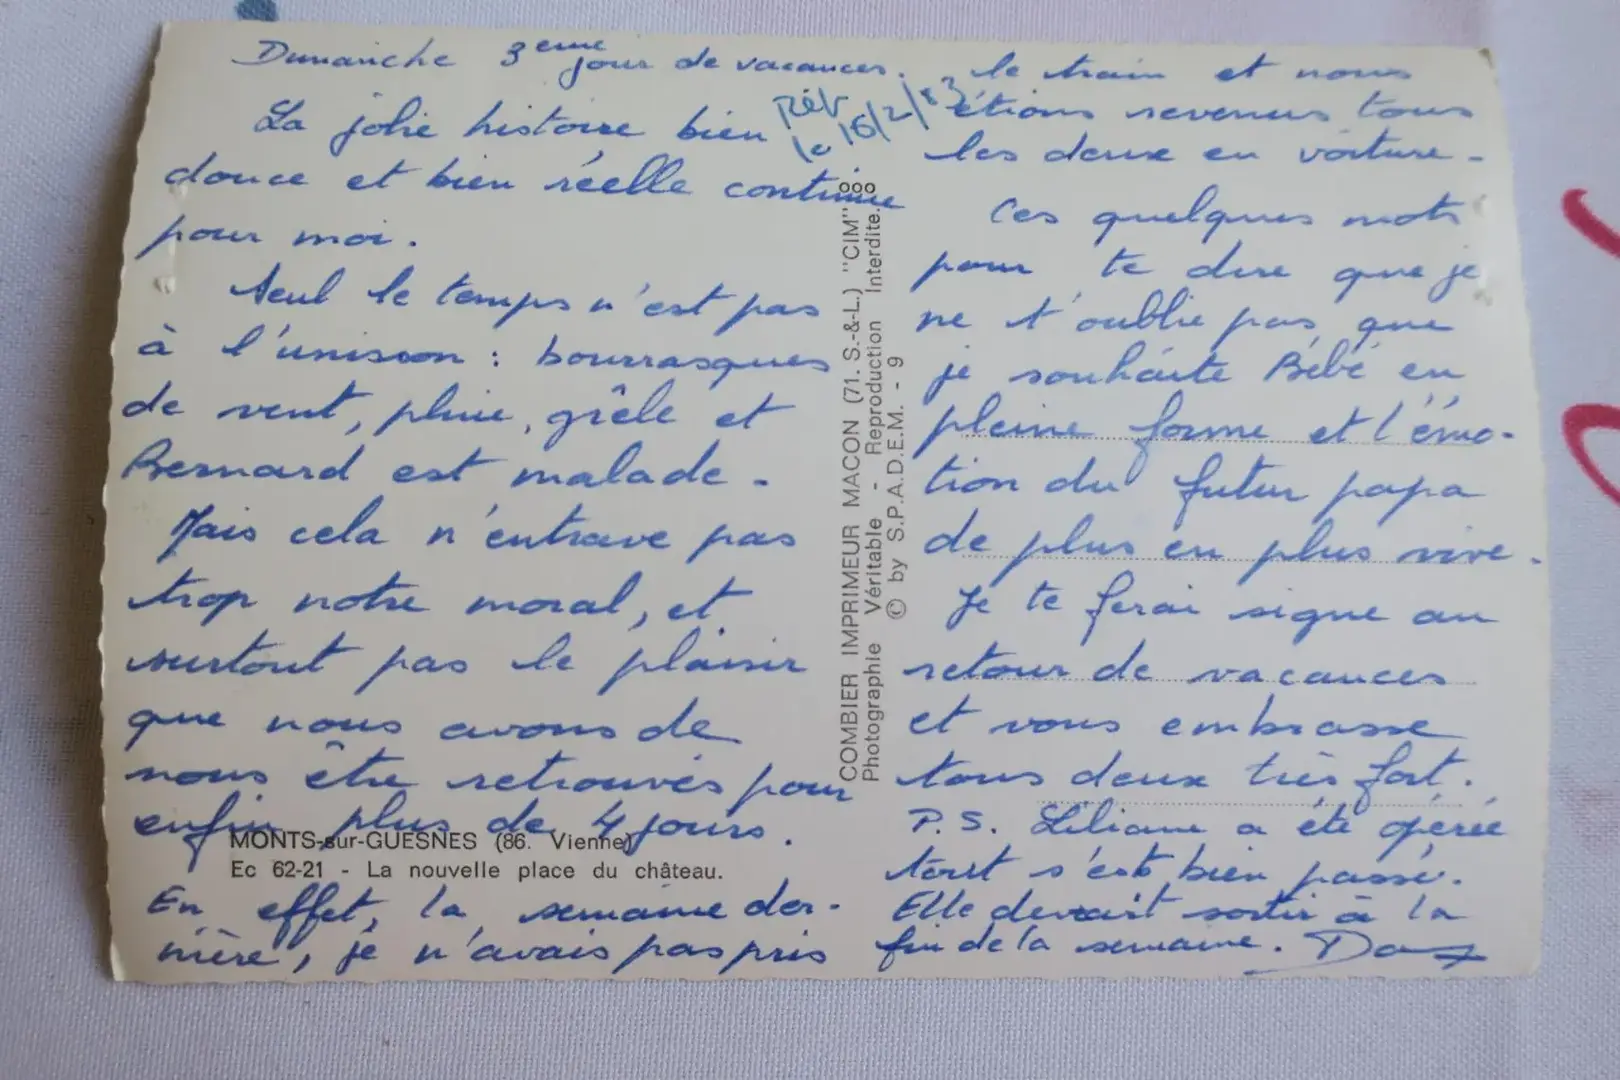 Dimanche 3eme jour de vacances.
La jolie histoire bien
douce et bien réelle continue
pour moi.
Seul le temps n'est pas
à l'unisson : bourrasques
de vent, pluie, grêle et
Bernard est malade.
Mais cela n'entrave pas
trop notre moral, et
surtout pas le plaisir
que nous avons de
nous être retrouvés pour
enfin plus de 4 jours.
MONTS-sur-GUESNES (86. Vienne)
Ec 62-21 - La nouvelle place du château.
En effet, la semaine der-
nière, je n'avais pas pris
Rép
le 16/2/83
COMBIER IMPRIMEUR MACON (71. S.-&-L.) "CIM" ooo
Photographie Véritable - Reproduction Interdite.
© by S.P.A.D.E.M. - 9
le train et nous
étions revenus tous
les deux en voiture.
Ces quelques mots
pour te dire que je
ne t'oublie pas, que
je souhaite Bébé en
pleine forme et l'émo-
tion du futur papa
de plus en plus vive.
Je te ferai signe au
retour de vacances
et vous embrasse
tous deux très fort.
P.S. Liliane a été opérée
tout s'est bien passé.
Elle devrait sortir à la
fin de la semaine.